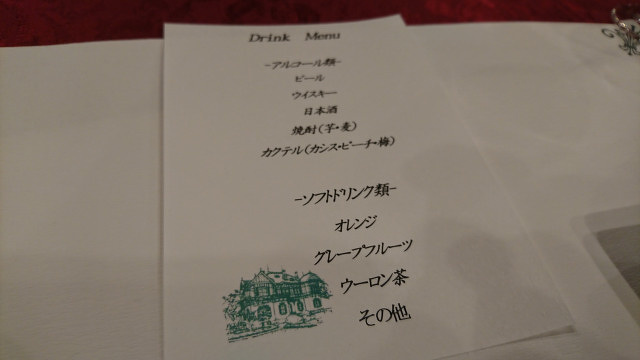 Drink Menu
-アルコール類-
ビール
ウイスキー
日本酒
焼酎(芋・麦)
カクテル(カシス・ピーチ・梅)
-ソフトドリンク類-
オレンジ
グレープフルーツ
ウーロン茶
その他